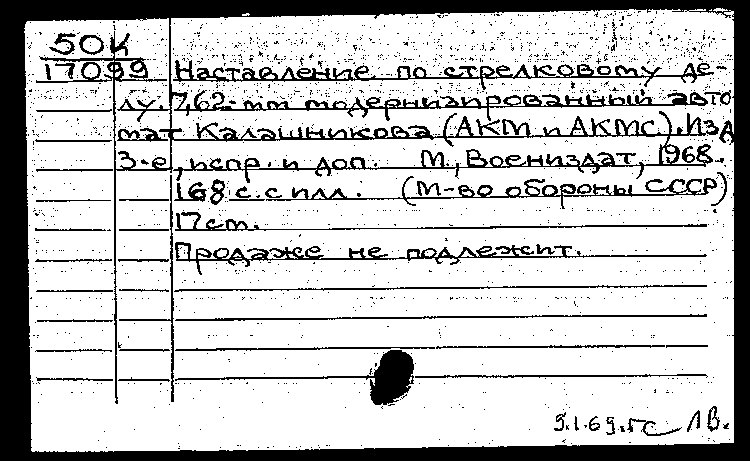 50К
17099 Наставление по стрелковому де-
лу. 7,62-мм модернизированный авто
мат Калашникова (АКМ и АКМС). Изд
3-е, испр. и доп. М., Воениздат, 1968.
168 с. с илл. (М-во обороны СССР)
17 см.
Продаже не подлежит.
9.1.69. ЛВ.